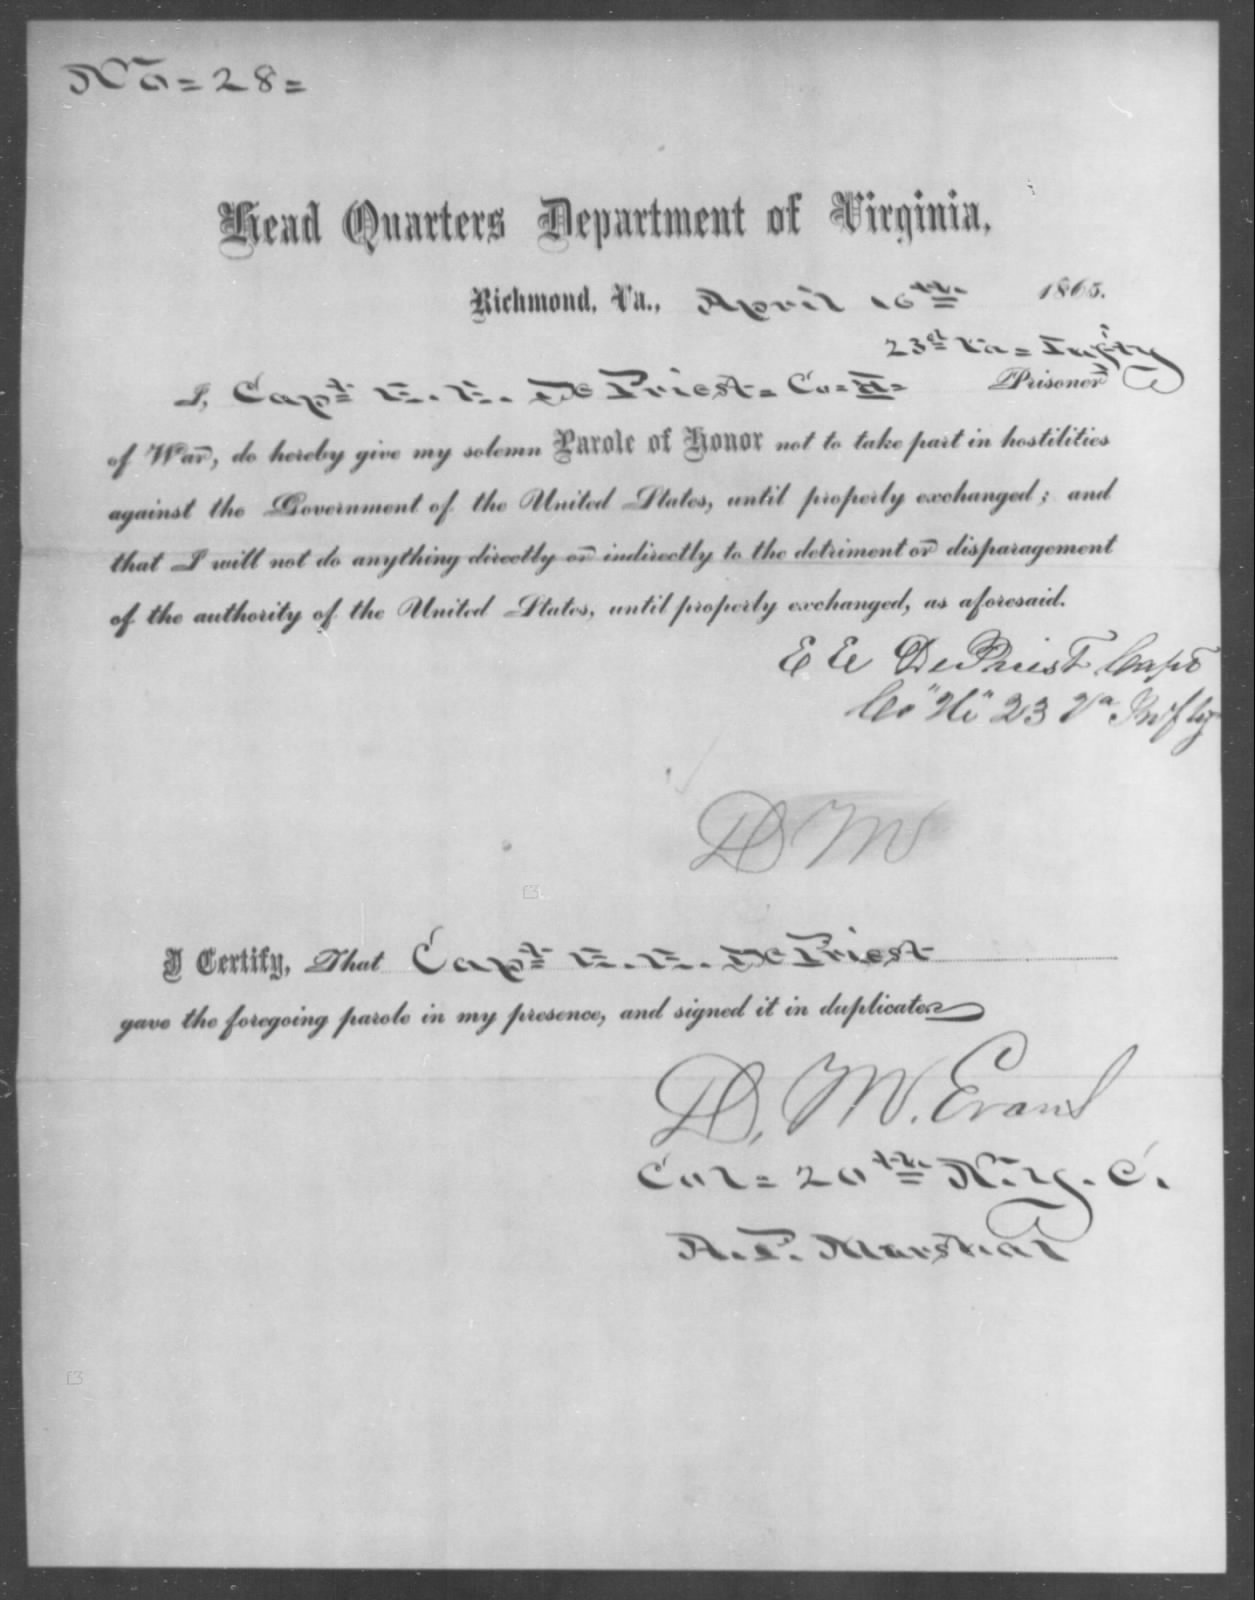 No = 28 =
Head Quarters Department of Virginia,
Richmond, Va., April 16th 1865.
23d Va = Infty
I, Capt E. E. De Priest = Co = H = Prisoner
of War, do hereby give my solemn Parole of Honor not to take part in hostilities
against the Government of the United States, until properly exchanged; and
that I will not do anything directly or indirectly to the detriment or disparagement
of the authority of the United States, until properly exchanged, as aforesaid.
E E DePriest Capt
Co "H" 23 Va Infty
D M
I Certify, That Capt E. E. De Priest
gave the foregoing parole in my presence, and signed it in duplicate.
D, M. Evans
Col = 20th N. Y. C.
A. P. Marshal